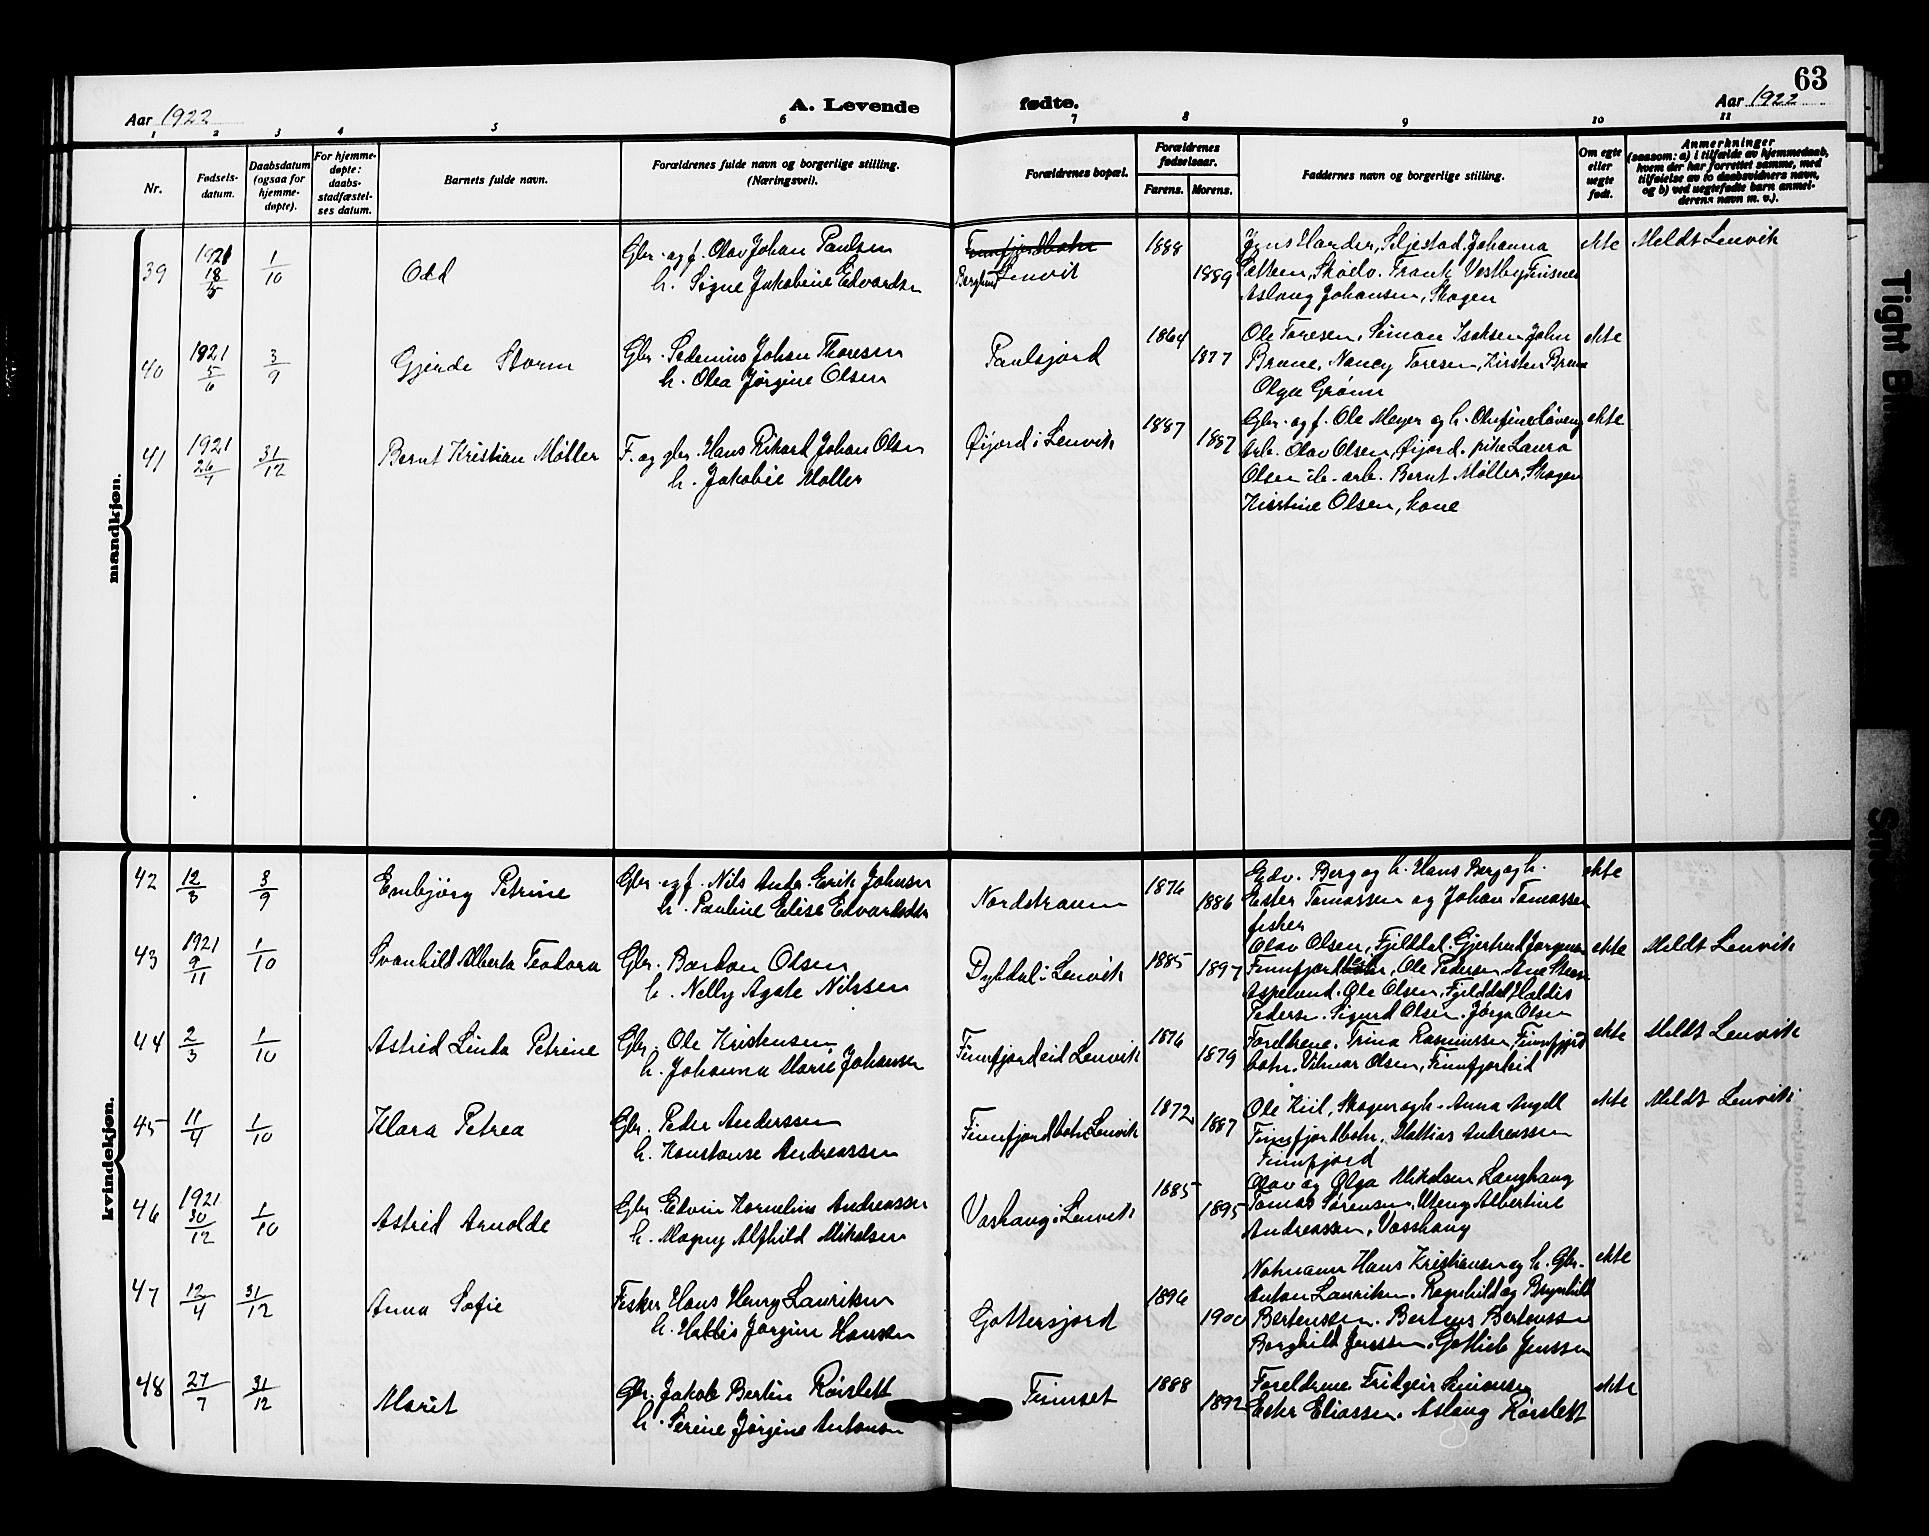 63
Aar 1922
A. Levende
fødte.
Aar 1922
1 2 3 4 5 6 7 8 9 10 11
Nr.
Fødsels-
datum.
Daabsdatum
(ogsaa for
hjemme-
døpte).
For hjemme-
døpte:
daabs-
stadfæstel-
ses datum.
Barnets fulde navn.
Forældrenes fulde navn og borgerlige stilling.
(Næringsvei).
Forældrenes bopæl.
Forældrenes
fødselsaar.
Farens.
Morens.
Faddernes navn og borgerlige stilling.
Om egte
eller
uegte
født.
Anmerkninger
(saasom: a) i tilfælde av hjemmedaab,
hvem der har forrettet samme, med
tilføielse av to daabsvidners navn,
og b) ved uegtefødte barn anmel-
derens navn m. v.).
mandkjøn.
39
1921 18/5
1/10
Odd
Gbr. og f. Olav Johan Paulsen
h. Signe Jakobine Edvardsen
Finnfjordbotn
Berglund Lenvik
1888
1889
Jens Harder, Seljestad. Johanna
Frank Vestby, Finsnes
Aslaug Johansen, Skogen
ekte
Meldt Lenvik
40
1921 5/6
3/9
Gjerde Storm
Gbr. Johan Thoresen
h. Olea Jørgine Olsen
Paulsjord
1864
1877
Ole Toresen, Simon Isaksen, John
Brune, Nancy Toresen, Kirsten Brune
Olga Grønn
ekte
41
1921
31/12
Bernt Kristian Møller
F. og gbr. Hans Rikard Johan Olsen
h. Jakobie Møller
Øijord i Lenvik
1887
1887
Gbr. og f. Ole Meyer og h.
Arb. Olav Olsen, Øijord. pike Laura
Olsen ib. arb. Bernt Møller, Skogen
Kirstine Olsen, kone
ekte
kvindekjøn.
42
12/3
3/9
Embjørg Petrine
Gbr. og f. Nils Andr. Erik Johnsen
h. Pauline Elise Edvardsdtr
Nordstraum
1876
1886
Edv. Berg og h. Hans Berg og h.
Ester Tomassen og Johan Tomassen
fisker
ekte
43
1921 9/11
1/10
Svanhild Alberta Teodora
Gbr. Bardon Olsen
h. Nelly Agate Nilssen
Dybdal i Lenvik
1885
1897
Olav Olsen, Fjelldal. Gjertrud Jørgensen
Finnfjordbotn, Ole Pedersen, Ane
Aspelund. Ole Olsen, Fjelldal, Haldis
Pedersen. Sigurd Olsen. Jørga Olsen
ekte
Meldt Lenvik
44
2/3
1/10
Astrid Linda Petrine
Gbr. Ole Kristensen
h. Johanna Marie Johansen
Finnfjordeid Lenvik
1876
1879
Foreldrene. Trina Rasmussen, Finnfjord
botn. Vilmar Olsen, Finnfjordeid
ekte
Meldt Lenvik
45
11/4
1/10
Klara Petrea
Gbr. Peder Anderssen
h. Konstanse Andreassen
Finnfjordbotn, Lenvik
1872
1887
Ole Kiil, Skogen og h. Anna Angell
Finnfjordbotn. Mattias Andreassen
Finnfjord
ekte
Meldt Lenvik
46
1921 30/12
1/10
Astrid Arnolde
Gbr. Edvin Kornelius Andreassen
h. Magny Alfhild Mikalsen
Vashaug i Lenvik
1885
1895
Olav og Olga Mikalsen Langhaug
Tomas Sørensen, Albertine
Andreassen, Vasshaug
47
12/4
31/12
Anna Sofie
Fisker Hans Henry Lauriksen
h. Haldis Jørgine Hansen
Gottersjord
1896
1900
Notmann Hans Kristiansen og h. Gbr.
Anton Lauriksen. Ragnhild og Brynhild
Bertenssen. Bertens Bertenssen
Borghild Jenssen. Gottlieb Jenssen
ekte
48
27/7
31/12
Marit
Gbr. Jakob Bertin Rørslett
h. Serine Jørgine Antonsen
Finnset
1888
1892
Foreldrene. Fridgeir Simonsen
Ester Eliassen. Aslaug Rørslett
ekte
Tight Bi